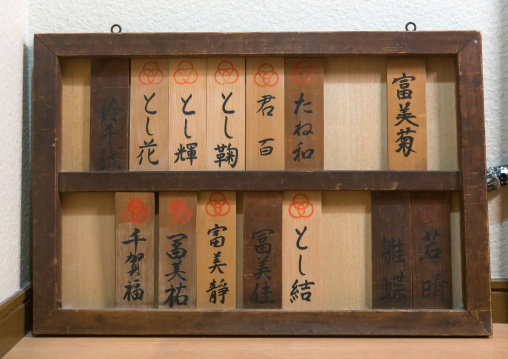 富美菊
たね和
君百
とし鞠
とし輝
とし花
若晴
雛蝶
とし結
冨美佳
富美静
冨美祐
千賀福